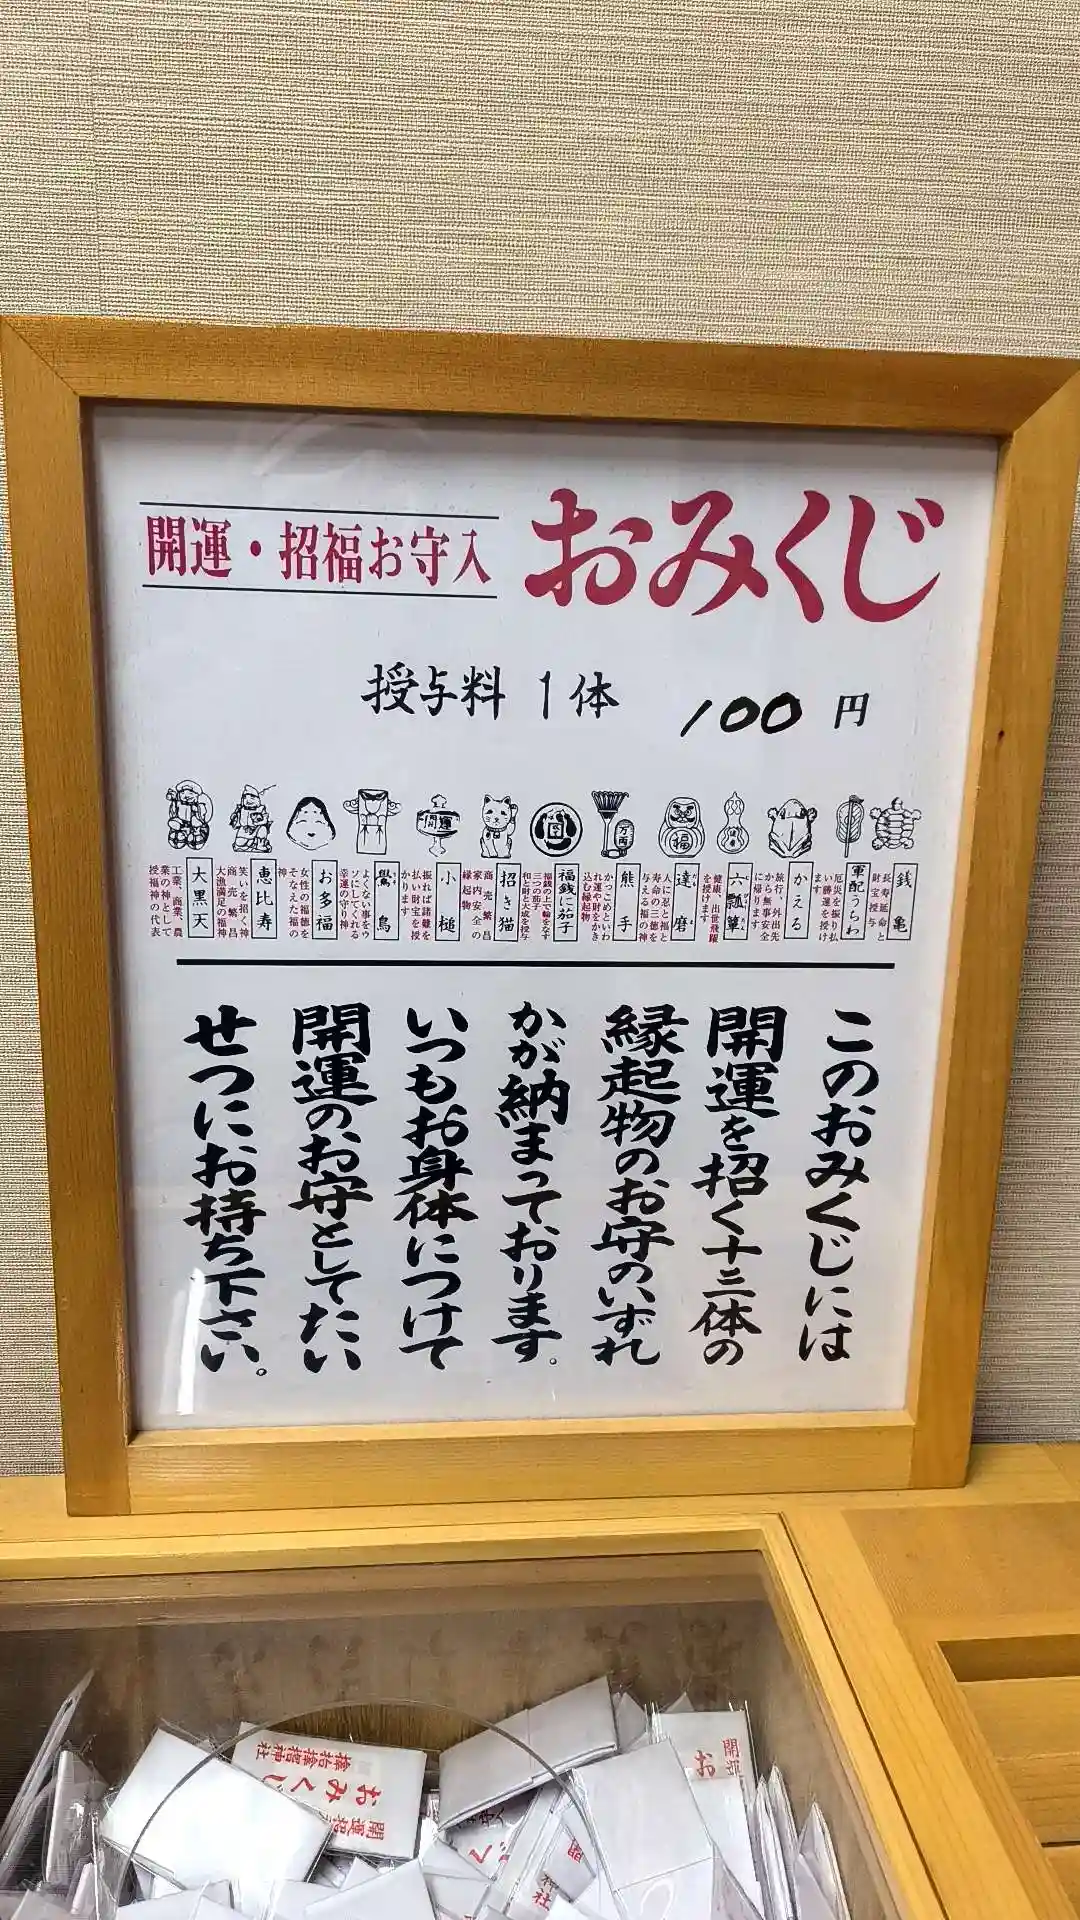 開運・招福お守入
おみくじ
授与料 1体 100 円
開運
福
万両
銭亀
長寿延命と
財宝授与
軍配うちわ
厄災を振り払
い勝運を授け
ます
かえる
旅行、外出先
から無事安全
に帰ります
六瓢箪
健康、出世飛躍
を授けます
達磨
人に忍と福と
寿命の三徳を
与える福の神
熊手
かっこめといわ
れ運や財をかき
込む縁起物
福銭に茄子
福銭の上で輪をなす
三つの茄子
和と財と大成を授与
招き猫
商売繁昌
家内安全の
縁起物
小槌
振れば諸難を
払い財宝を授
かります
鷽鳥
よくない事をウ
ソにしてくれる
幸運の守り神
お多福
女性の福徳を
そなえた福の
神
恵比寿
笑いを招く神
商売繁昌
大漁満足の福神
大黒天
工業、商業、農
業の神として
授福神の代表
このおみくじには
開運を招く十三体の
縁起物のお守のいずれ
かが納まっております。
いつもお身体につけて
開運のお守としてたい
せつにお持ち下さい。
おみくじ
開運招
開運
お
神社